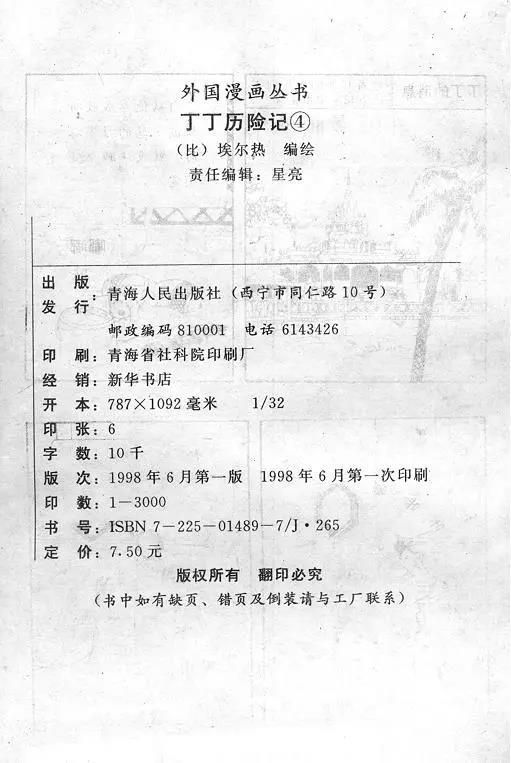 外国漫画丛书
丁丁历险记④
（比）埃尔热　编绘
责任编辑：星亮
出版
发行：青海人民出版社（西宁市同仁路10号）
邮政编码810001　电话6143426
印刷：青海省社科院印刷厂
经销：新华书店
开本：787×1092毫米　1/32
印张：6
字数：10千
版次：1998年6月第一版　1998年6月第一次印刷
印数：1－3000
书号：ISBN 7－225－01489－7/J·265
定价：7.50元
版权所有　翻印必究
（书中如有缺页、错页及倒装请与工厂联系）